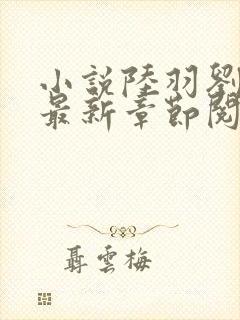 小説陸羽劉
最新章節閱
聶雲梅